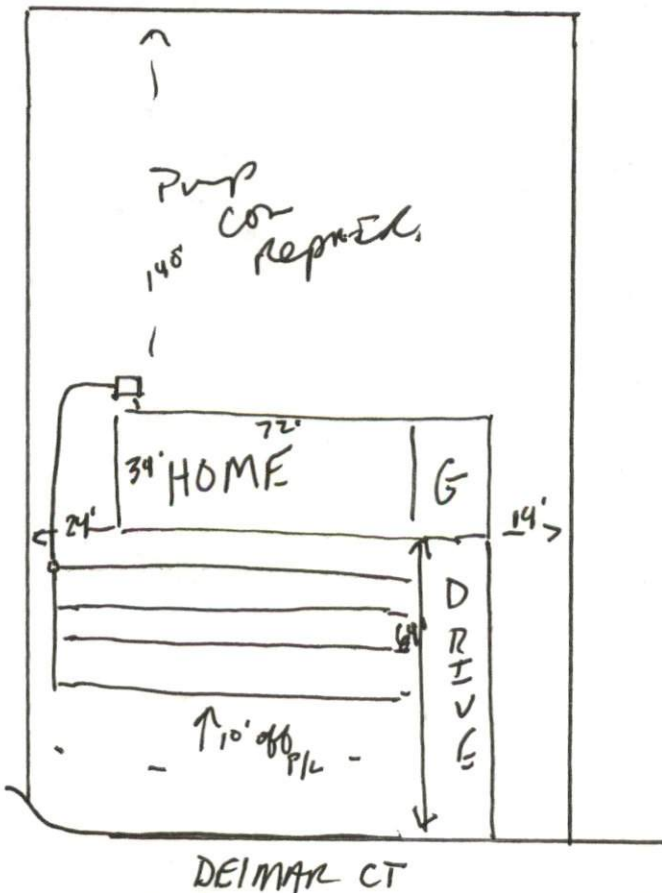 Pump
Con
Repair.
140'
72'
34' HOME
G
24'
14'
DRIVE
64'
10' off
P/L
DELMAR CT